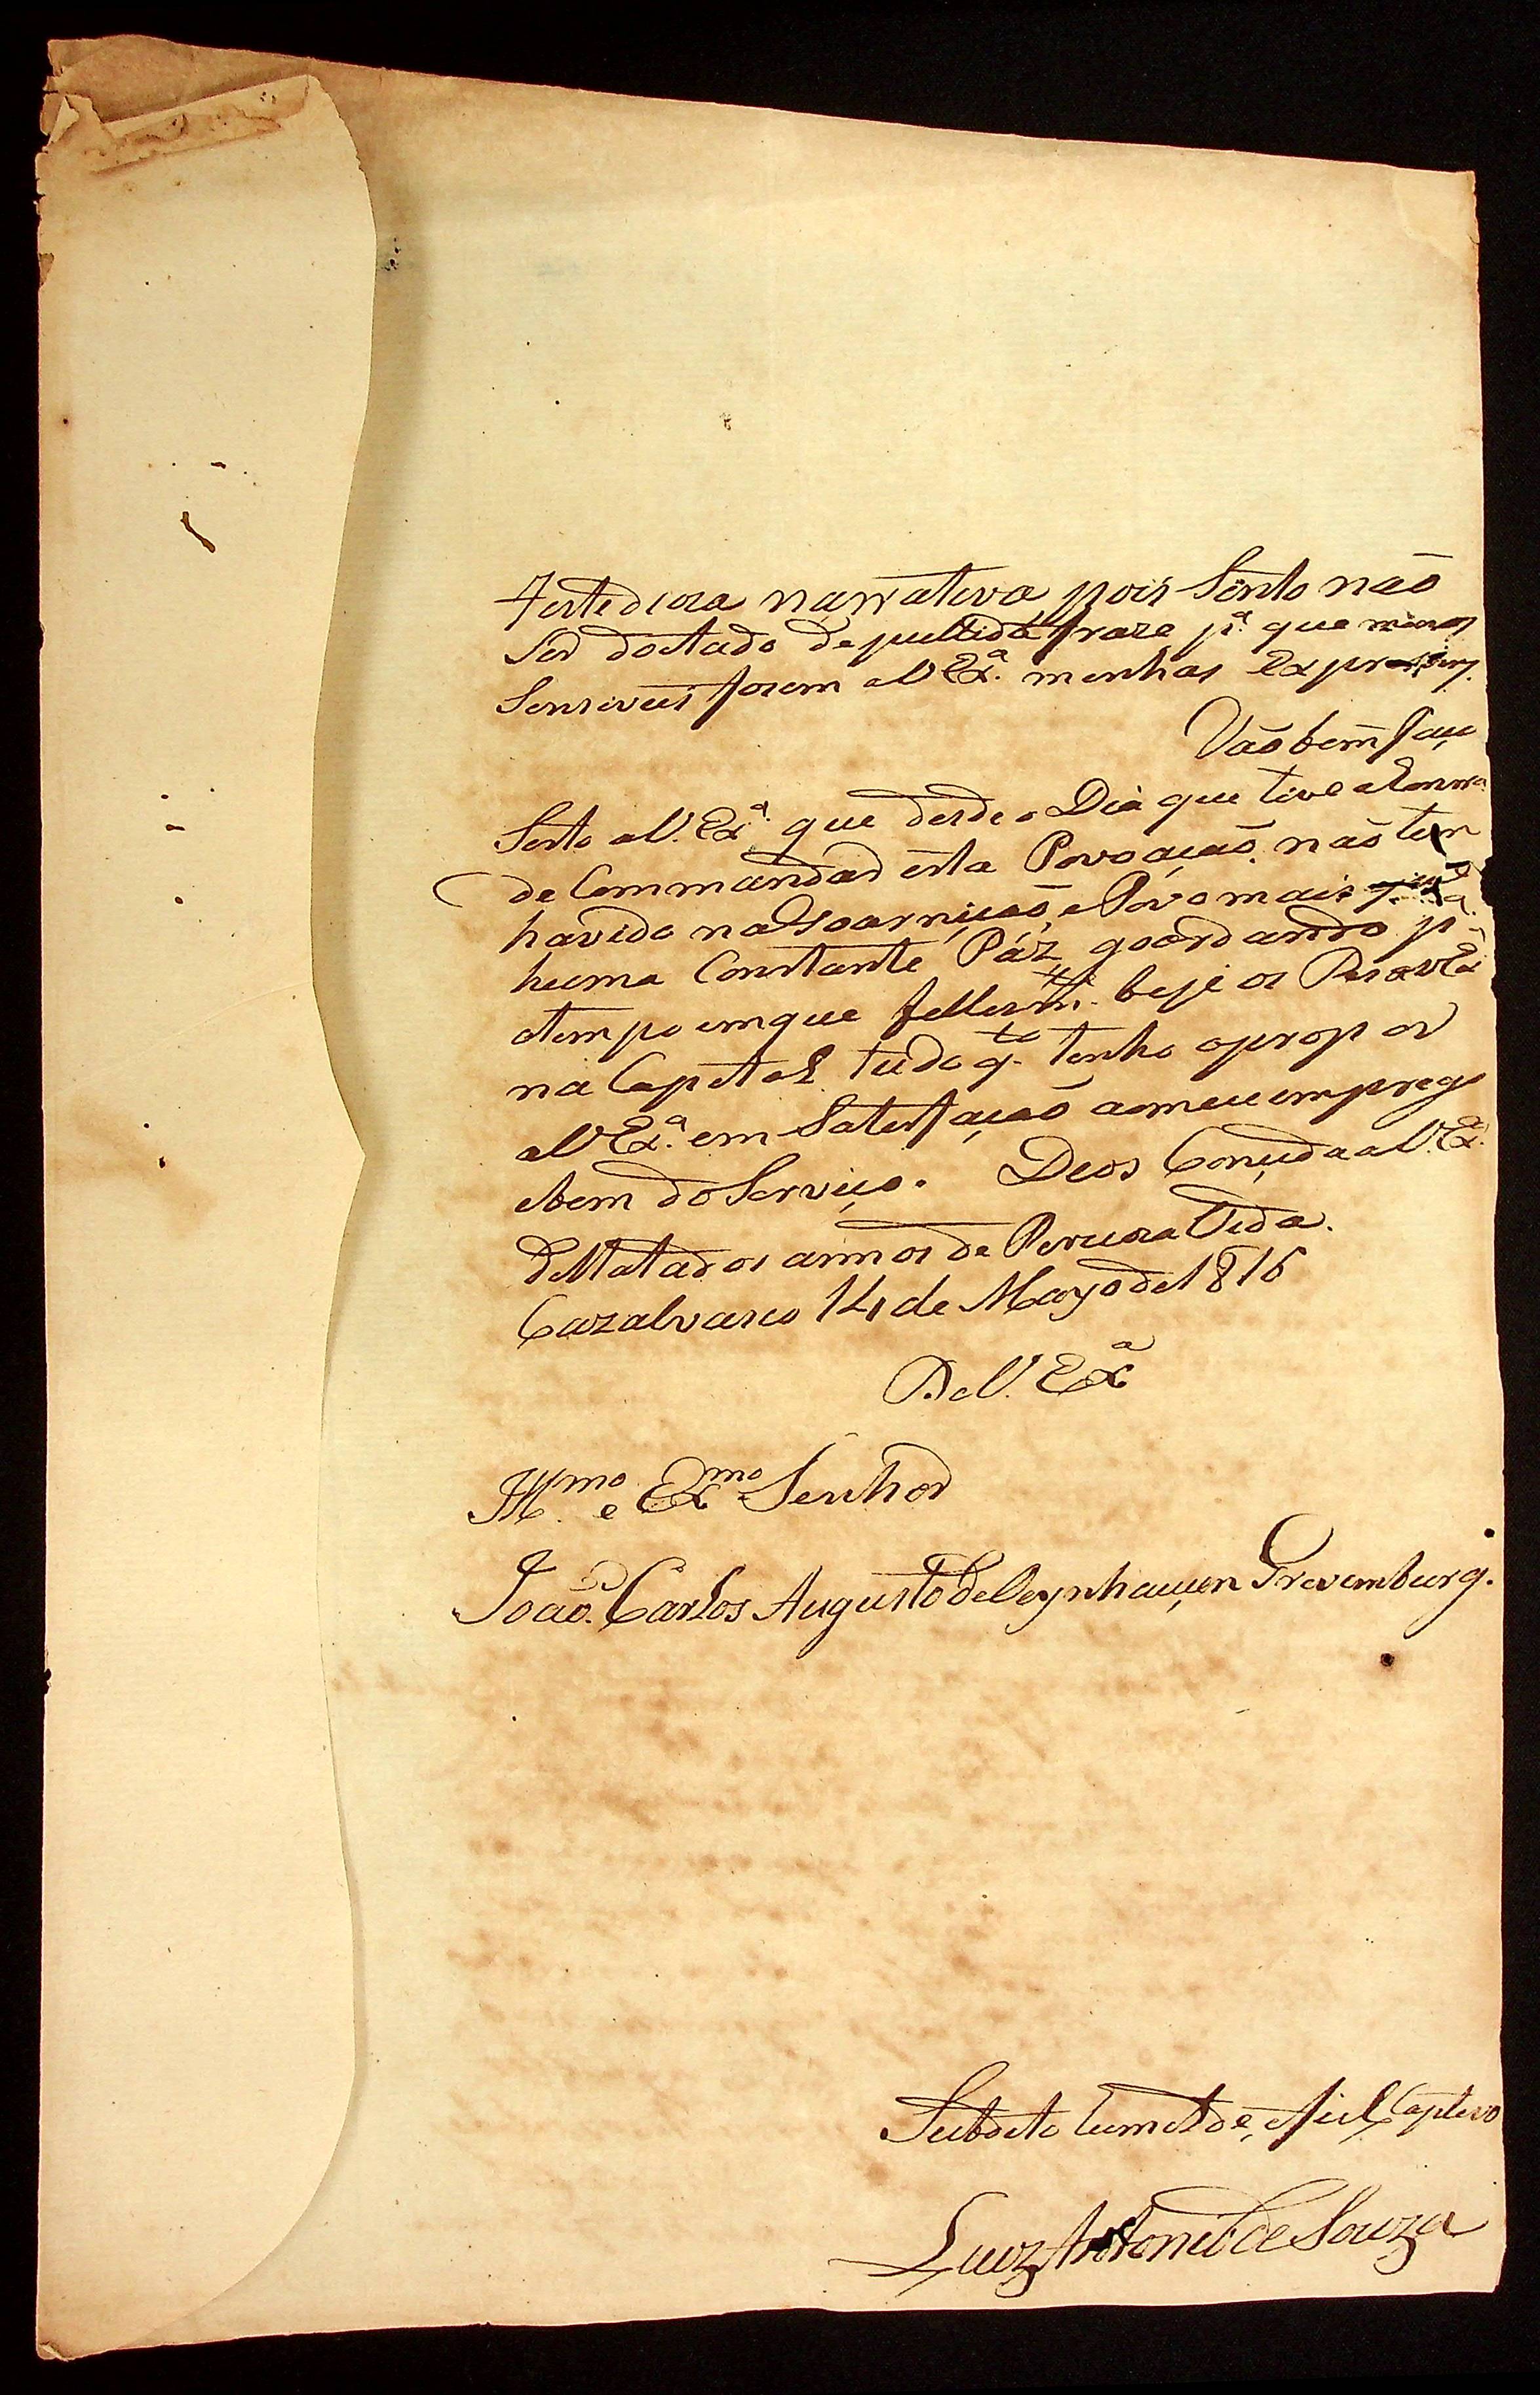 Fastediosa narrativa, pois Sinto não
Ser doctado de pullida fraze p.ª que menos
Sensiveis forem a V. Ex.ª menhas Expresoins.
Vão bem faço
Serto a V. Ex.ª que desde o Dia que tive a Honra
de Commandar ésta Povoação, não tem
havido na Goarnição, e Povo mais
huma Constante Páz, goardando p.ª
otempo em que fellesm.te beje os Pes a V Ex.ª
na Capital tudo q.to tenho a propor
a V Ex.ª em Satesfação ao meu emprego
ebem do Serviço. Deos Conçeda a V. Ex.ª
Dellatados annos de Perciosa Vida.
Cazalvasco 14 de Mayo de 1816
De V. Ex.ª
Ill.mo e Ex.mo Senhor
João Carlos Augusto de Oeynhauçen Grevemburg.
Subdito humilde, e fiel Captivo
Luiz Antonio de Souza